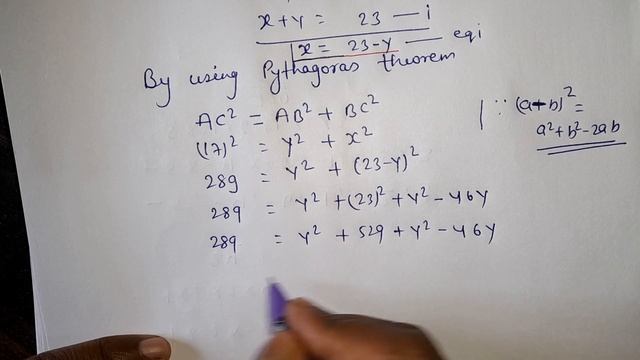 x+y = 23 — i
x = 23-y — eqi
By using Pythagoras theorem
AC² = AB² + BC²
(17)² = y² + x²
289 = y² + (23-y)²
289 = y² + (23)² + y² - 46y
289 = y² + 529 + y² - 46y
∵ (a-b)² =
a²+b²-2ab